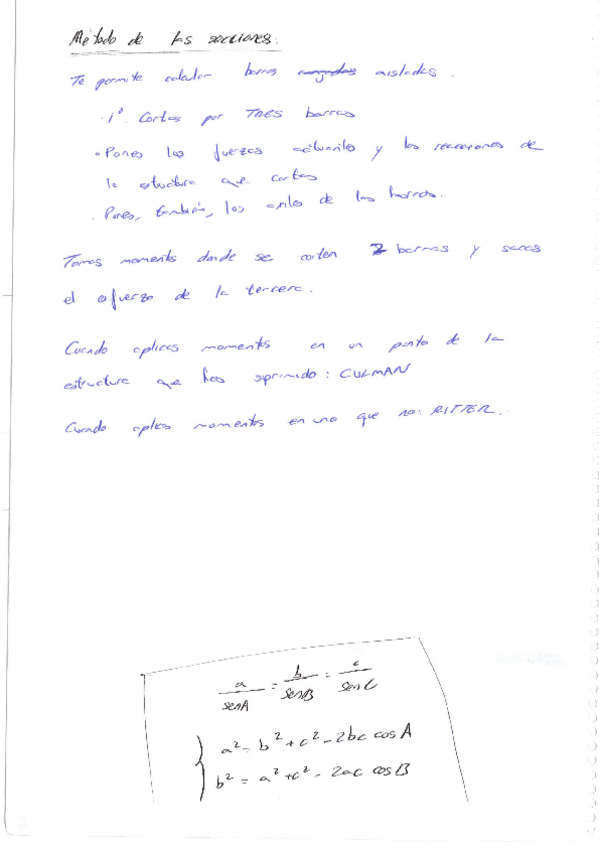 Método de las secciones:
Te permite calcular barras cargadas aisladas.
· 1º. Cortas por TRES barras
· Pones las fuerzas actuantes y las reacciones de
la estructura que cortas
. Pones, también, los axiles de las barras.
Tomas momento donde se corten 2 barras y sacas
el esfuerzo de la tercera.
Cuando aplicas momentos en un punto de la
estructura que has suprimido: CULMAN
Cuando aplicas momentos en uno que no: RITTER.
a/senA = b/senB = c/senC
a² = b² + c² - 2bc cos A
b² = a² + c² - 2ac cos B